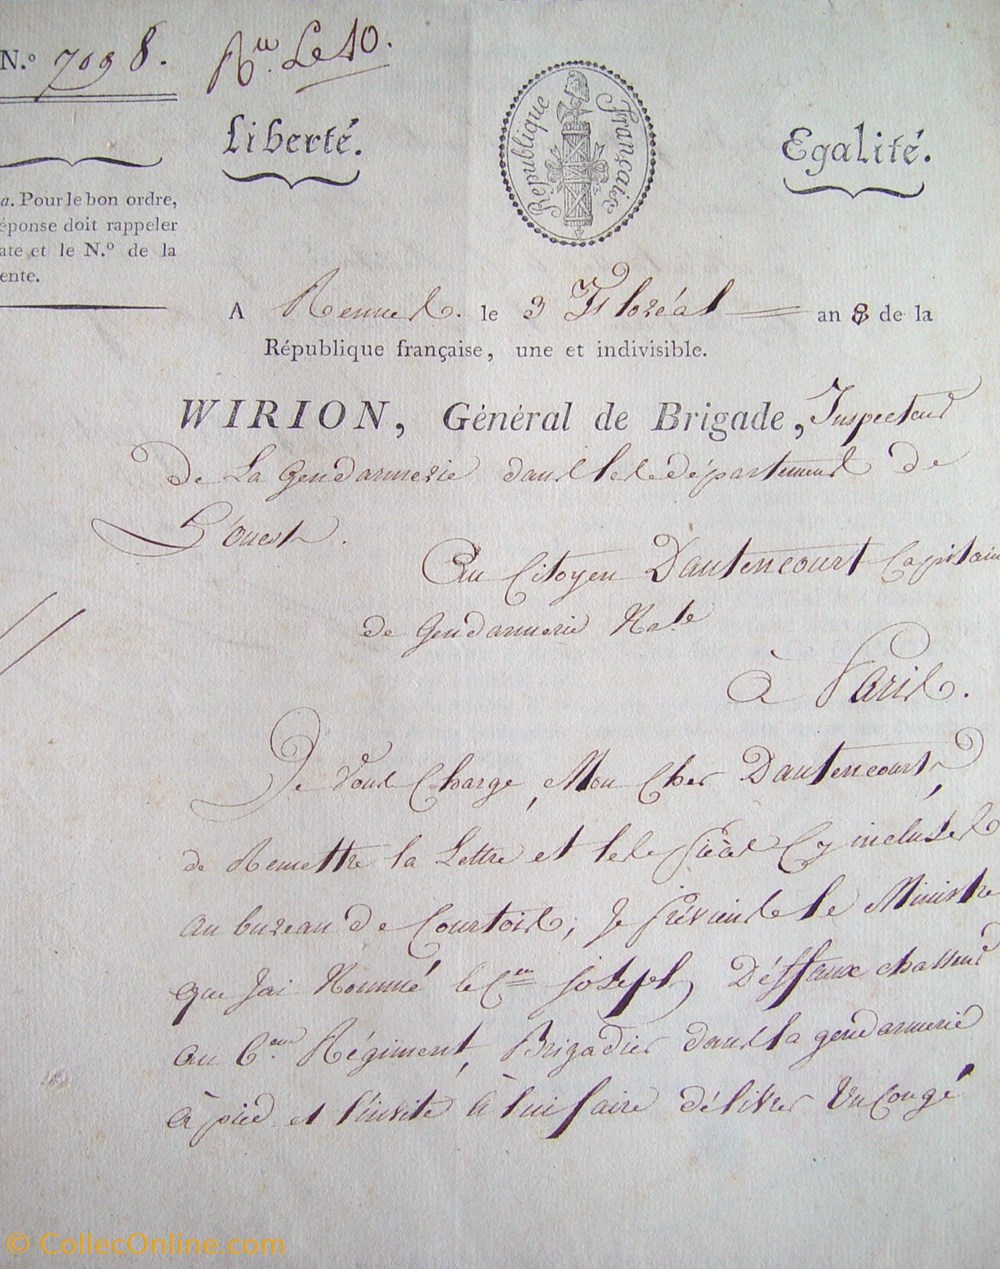 N.º 7098. Rue Le 10.
Liberté.
République Française
Egalité.
a. Pour le bon ordre,
éponse doit rappeler
ate et le N.º de la
ente.
A Rennes. le 3 Floréal an 8 de la
République française, une et indivisible.
WIRION, Général de Brigade, Inspecteur
De La Gendarmerie dans les département de
L'ouest.
Au Citoyen Dautencourt Capitain
de Gendarmerie Nale
à Paris.
Je vous charge, Mon Cher Dautencourt,
de Remettre la Lettre et les pièces Cy incluses
au bureau de Courtois; je préviens le Ministre
que j'ai Nommé le Cen joseph Déffaux chasseur
au 6eme Régiment, Brigadier dans la gendarmerie
à pied et l'invite à lui faire délivrer Un Congé
© CollecOnline.com